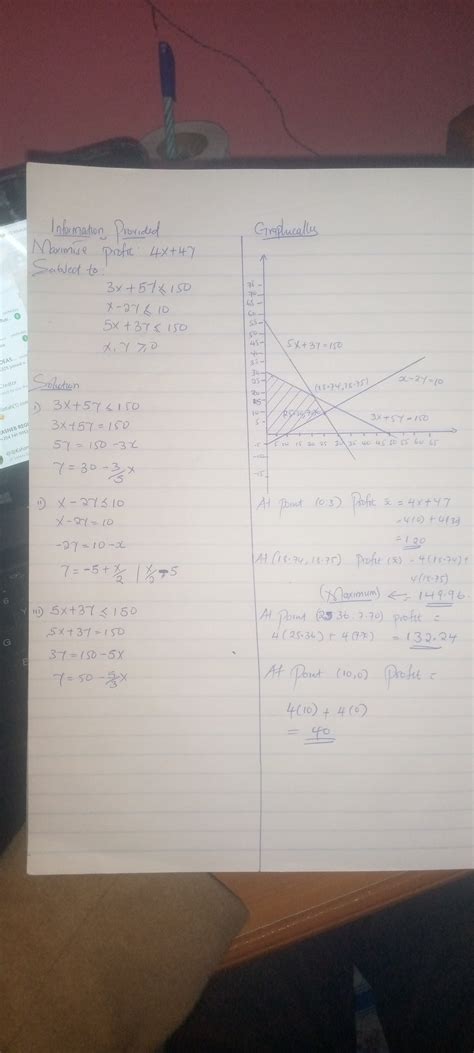 Information Provided
Maximise profit: 4x+4y
Subject to:
3x+5y≤150
x-2y≤10
5x+3y≤150
x,y≥0
Solution
i) 3x+5y≤150
3x+5y=150
5y=150-3x
y=30-3/5x
ii) x-2y≤10
x-2y=10
-2y=10-x
y=-5+x/2 | x/2-5
iii) 5x+3y≤150
5x+3y=150
3y=150-5x
y=50-5/3x
Graphically
75
70
65
60
55
50
45
40
35
30
25
20
15
10
5
-5
-10
-15
5 10 15 20 25 30 35 40 45 50 55 60 65
5x+3y=150
(18.74,18.75)
x-2y=10
3x+5y=150
At point (0,3) Profit = 4x+4y
=4(0)+4(3)
=120
At (18.74,18.75) Profit = 4(18.74)+
4(18.75)
(Maximum) ← = 149.96
At point (25.36, 7.70) profit =
4(25.36)+4(7.7) = 132.24
At point (10,0) Profit =
4(10)+4(0)
= 40